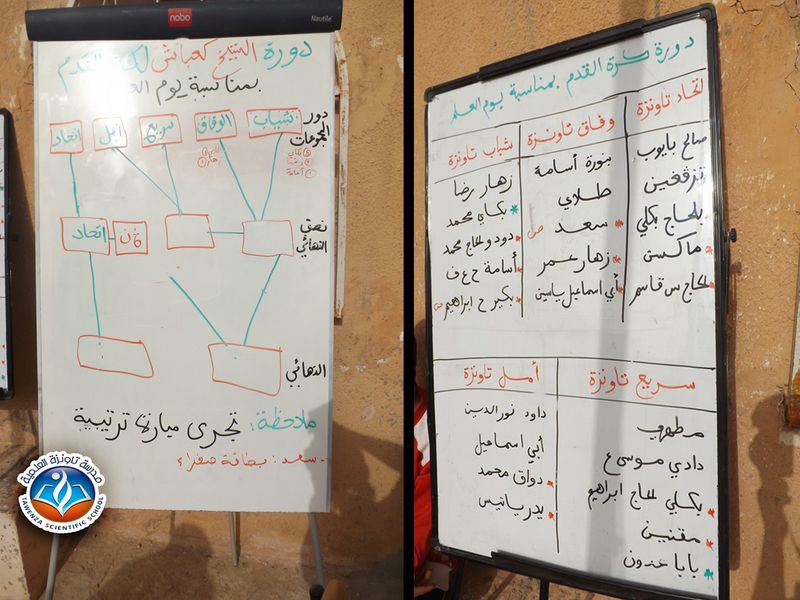 nobo
Nautile
دورة الشيخ كعباش لكرة القدم
بمناسبة يوم العلم
دور
المجموعات
شباب
الوفاق
سريع
أمل
اتحاد
نصف
النهائي
خ ن
اتحاد
النهائي
ملاحظة: تجرى مباراة ترتيبية
- سعد: بطاقة صفراء
مدرسة تاونزة العلمية
TAWENZA SCIENTIFIC SCHOOL
دورة كرة القدم بمناسبة يوم العلم
اتحاد تاونزة
صالح بايوب
تزقغين
بلحاج بكلي
ماكسن
لحاج س قاسم
وفاق تاونزة
بنورة أسامة
طلاي
سعد ص
زهار عمر
أبي اسماعيل ياسين
شباب تاونزة
زهار رضا
بكاي محمد
دود ولحاج محمد
أسامة ح ع ف
بكير ح ابراهيم ص
سريع تاونزة
مطهري
دادي موسى ع
بكلي لحاج ابراهيم
مقنين
بابا عدون
أمل تاونزة
داود نور الدين
أبي اسماعيل
دواق محمد
يدر باتيس